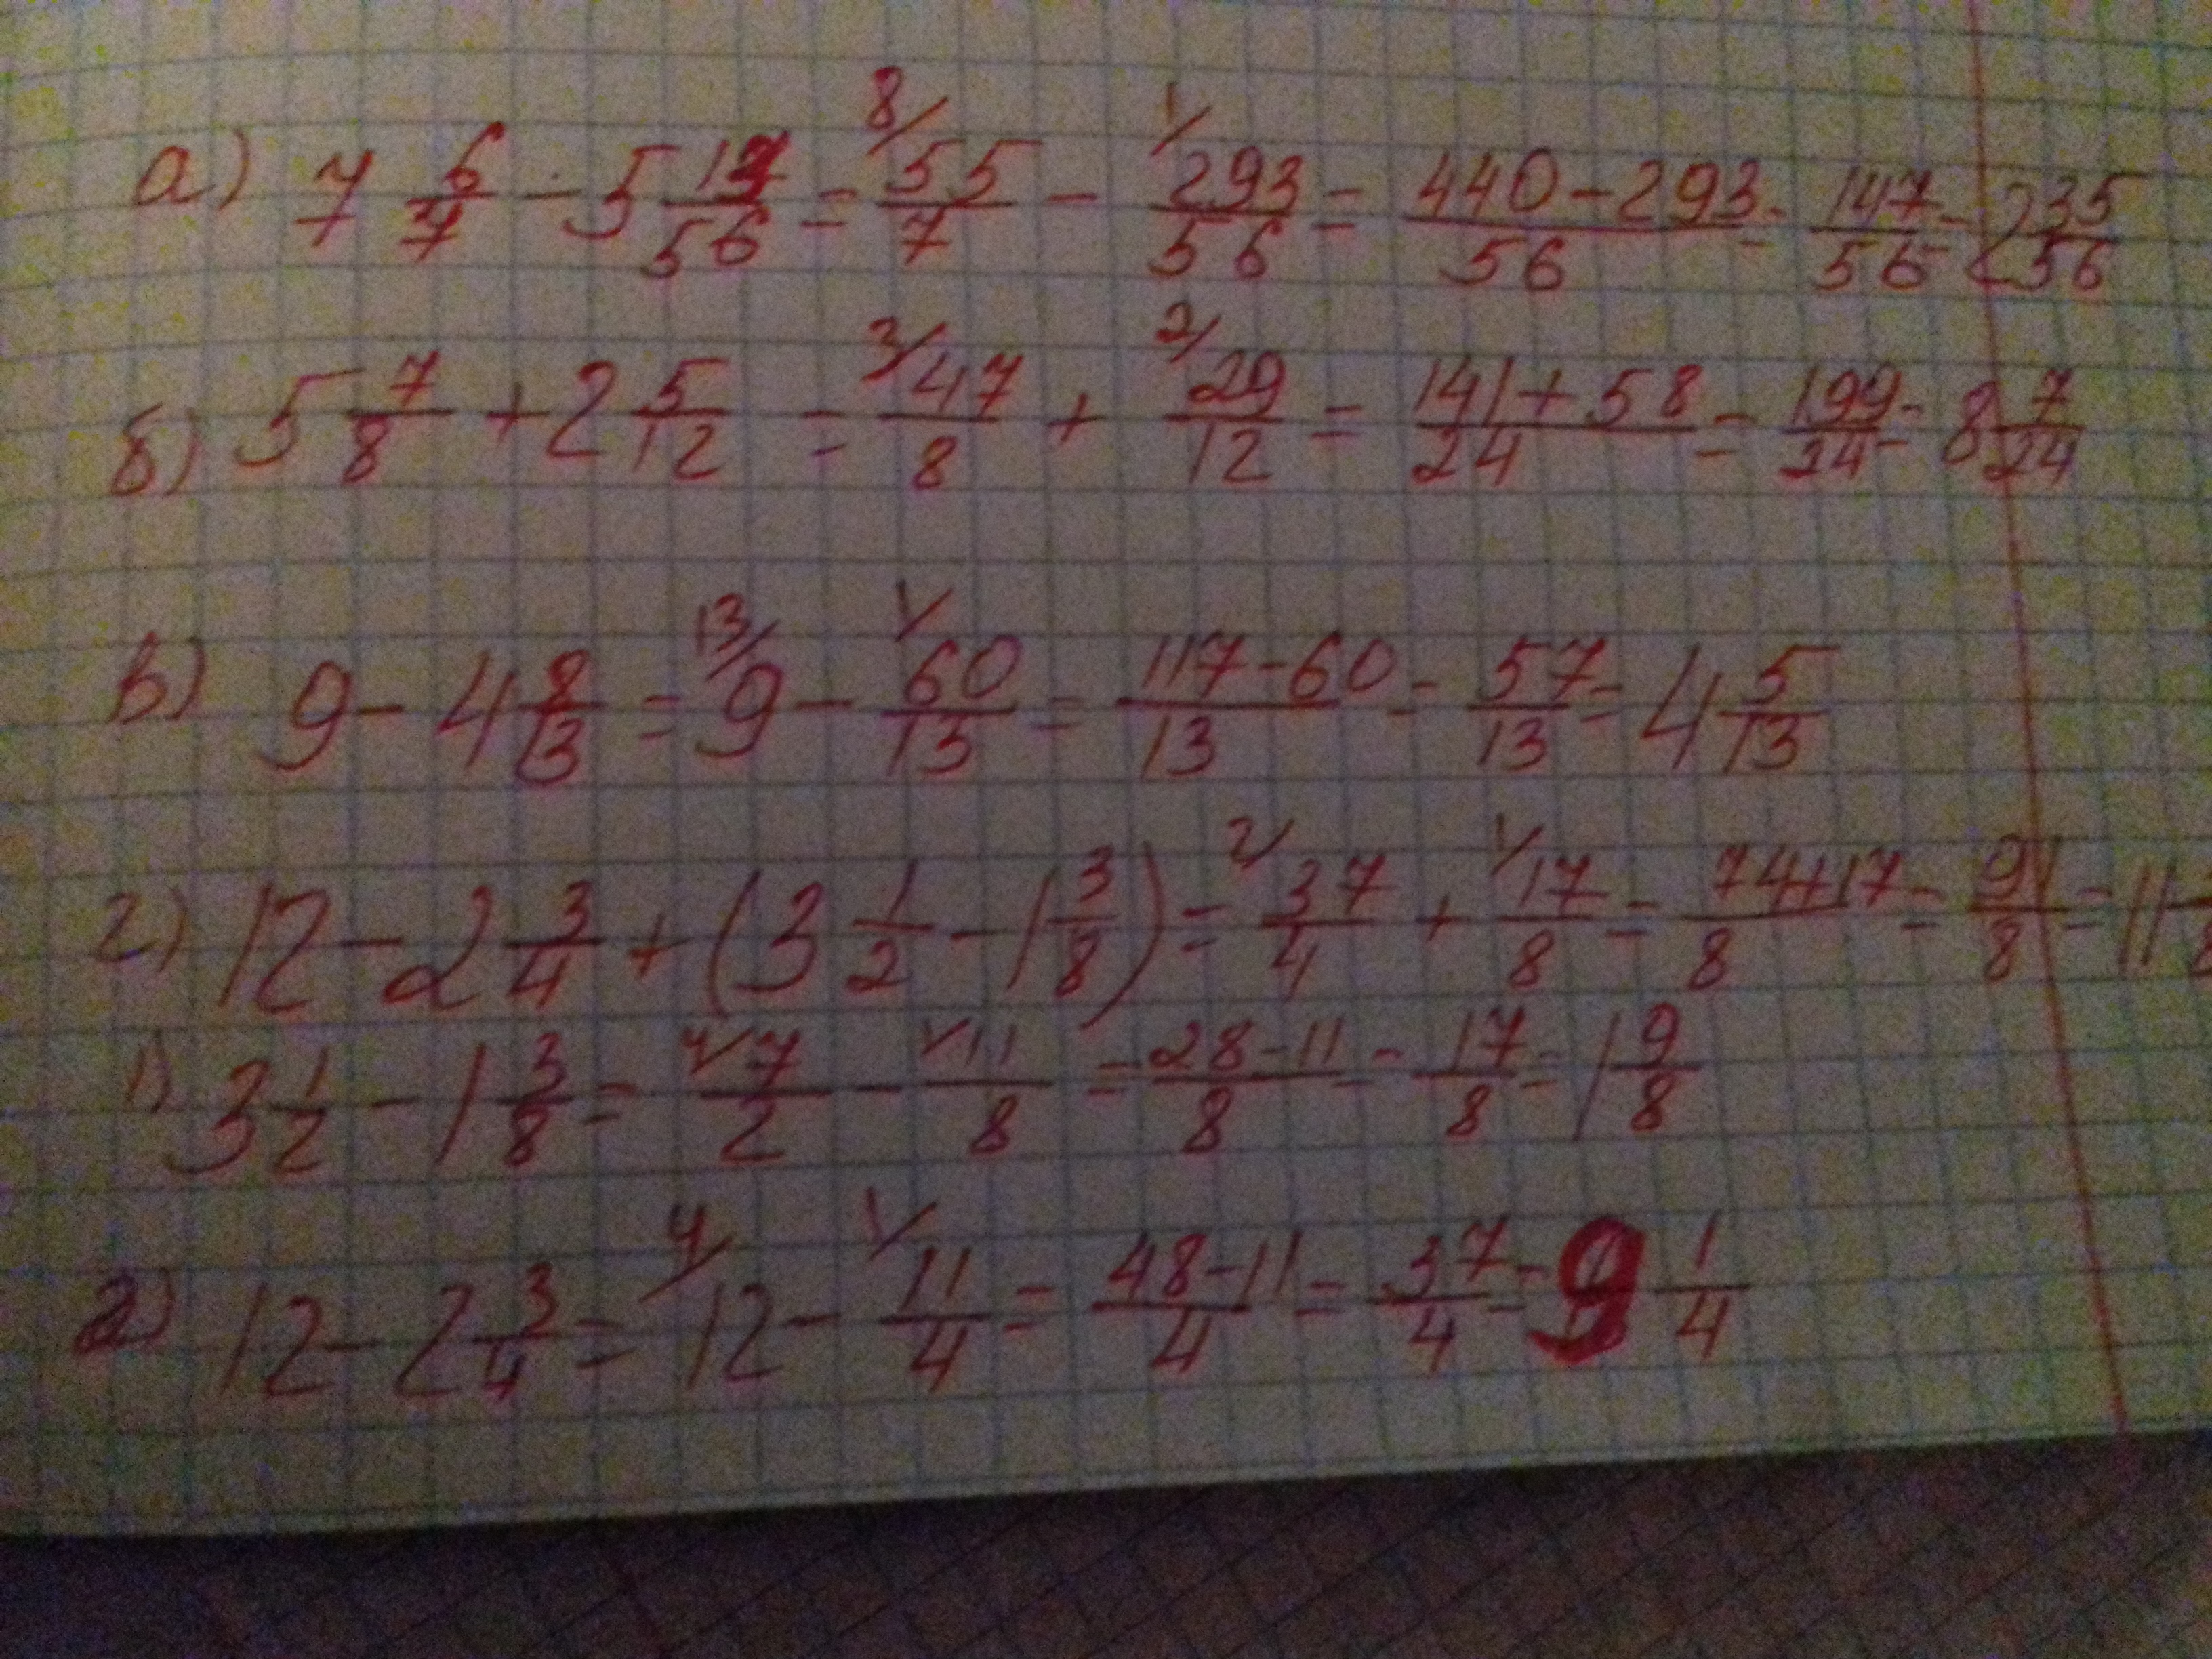 а) 7 6/7 - 5 13/56 = 8/ 55/7 - 1/ 293/56 = (440-293)/56 = 147/56 = 2 35/56
б) 5 7/8 + 2 5/12 = 3/ 47/8 + 2/ 29/12 = (141+58)/24 = 199/24 = 8 7/24
в) 9 - 4 8/13 = 13/ 9 - 1/ 60/13 = (117-60)/13 = 57/13 = 4 5/13
г) 12 - 2 3/4 + (3 1/2 - 1 3/8) = 2/ 37/4 + 1/ 17/8 = (74+17)/8 = 91/8 = 11
1) 3 1/2 - 1 3/8 = 4/ 7/2 - 1/ 11/8 = (28-11)/8 = 17/8 = 1 9/8
2) 12 - 2 3/4 = 4/ 12 - 1/ 11/4 = (48-11)/4 = 37/4 = 9 1/4